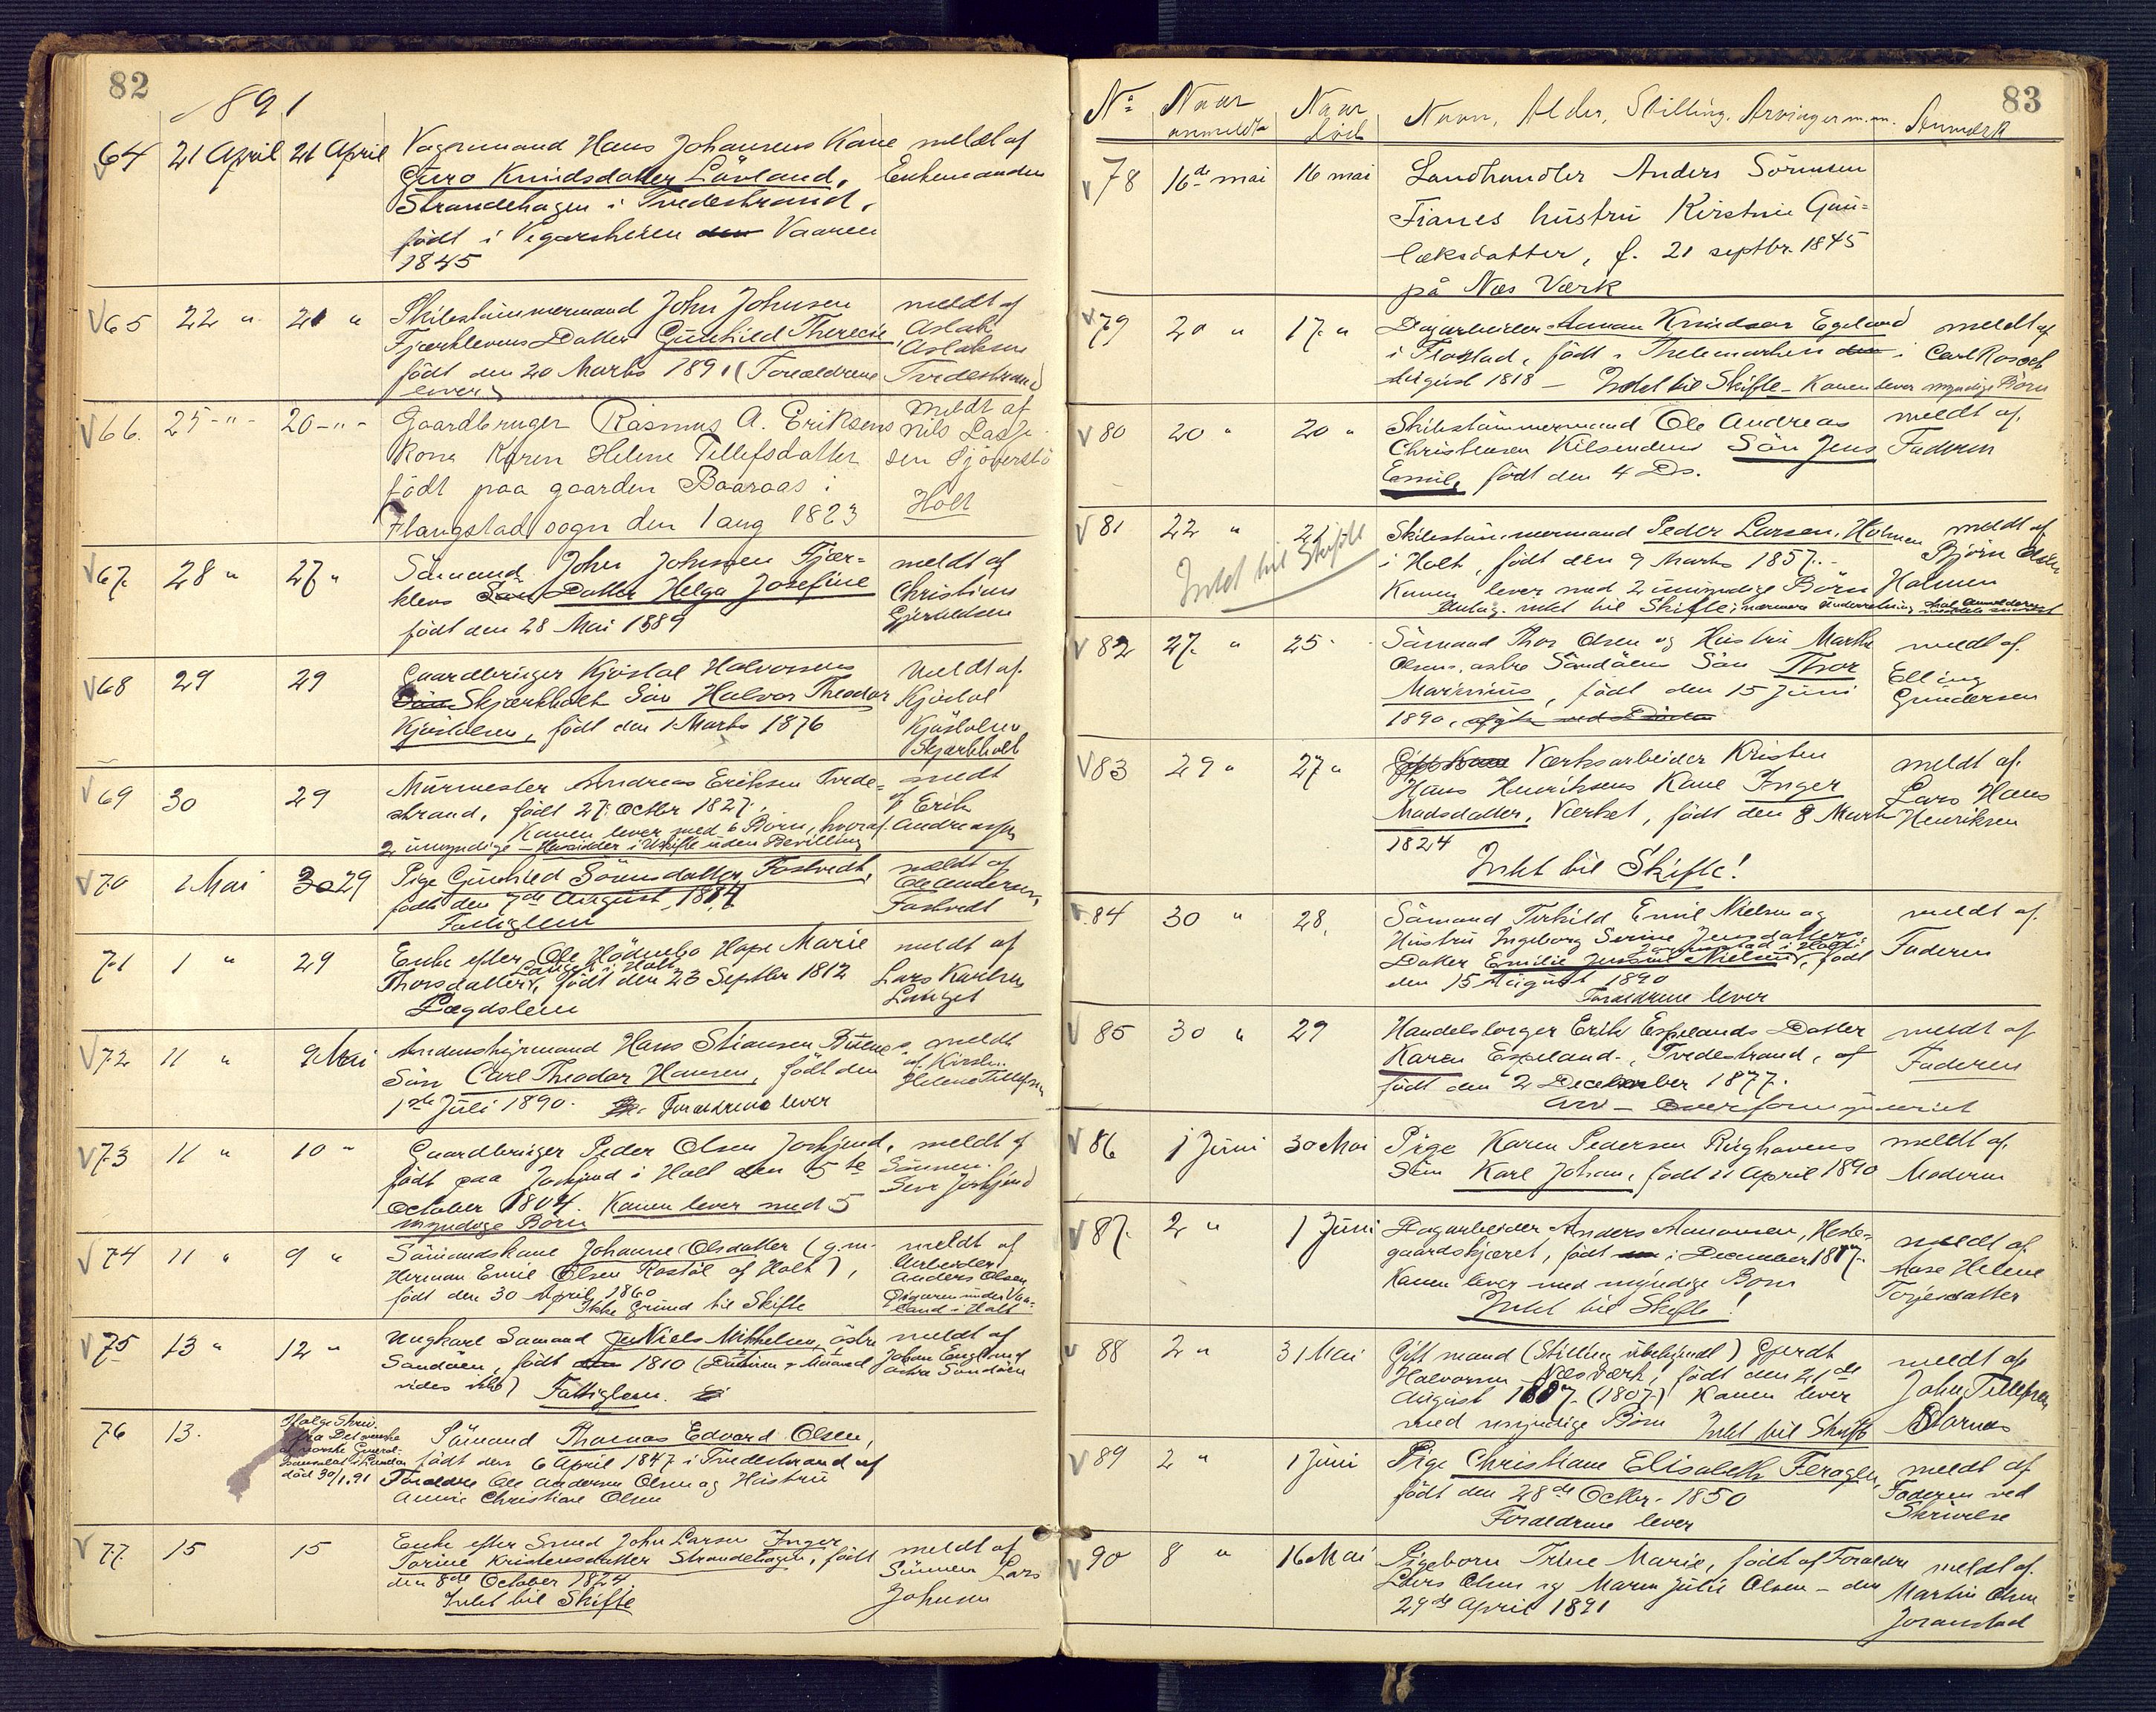 82
1891
64 21 April 21 April Vognmand Hans Johansens Kone meldt af
Guro Knudsdatter Lövland, Enkemanden
Strandehagen i Tvedestrand,
födt i Vegarsheien den Vaaren
1845
65 22 " 21 " Skibstömmermand John Johnsen meldt af
Fjærklevens Datter Gunhild Therecie Aslak
födt den 20 Marts 1891 (Forældrene Aslaksen
lever) Tvedestrand
66. 25 - " - 20 - " - Gaardbruger Rasmus A. Eriksens meldt af
Kone Karen Helene Tellefsdatter Nils
födt paa gaarden Baaraas i sen
Flangstad sogn den 1 aug 1823 Holt
67. 28 " 27 " Sömand John Johnsen Fjær- meldt af
klevs Sön Datter Helga Josefine Christian
födt den 28 Mai 1889 Gjeruldsen
68 29 29 Gaardbruger Kjöstol Halvorsens meldt af
Skjærkholt Sön Halvor Theodor Kjöstol
Kjöstolsen, födt den 1 Marts 1876 Kjöstolsen
Skjærkholt
69 30 29 Murmester Andreas Eriksen Tvede- meldt
strand, födt 27. Octbr 1827. af Erik
Konen lever med 6 Börn, hvoraf Andreassen
2 umyndige - Hensidder i Uskifte uden Bevilling
70 1 Mai 30 29 Pige Gunhild Sörensdatter Fostvedt, meldt af
födt den 7de August 1814 Ole Andersen,
Fattiglem Fostvedt
71 1 " 29 Enke efter Ole Hödnebö Hope Marie meldt af
Langet i Holt
Thorsdatter, födt den 23 Septbr 1812 Lars Karlsen
Lægdslem Langet
72 11 " 9 Mai Andenstyrmand Hans Stiansen meldt
Sön Carl Theodor Hansen, födt den af Kirstine
1ste Juli 1890. Forældrene lever Helene Tellefsen
73 11 " 10 " Gaardbruger Peder Olsen Joskjend, meldt af
födt paa Joskjend i Holt den 5te Sönnen
October 1804. Konen lever med 5 Joskjend
myndige Börn
74 11 " 9 " Sömandskone Johanne Olsdatter (g.m. meldt af
Herman Emil Olsen Rostöl af Holt), Arbeider
födt den 30 April 1860 Anders Olsen
Ikke Grund til Skifte land i Holt
75 13 " 12 " Ungkarl Sömand Jens Niels Mikkelsen, östre meldt af
Sandöen, födt den 1810 (Datum & Maaned Johan Englund
vides ikke) Fattiglem. östre Sandöen
76 13. Ifölge Skriv.
fra Det svenske
og norske General-
consulat i London
död 30/1.91
Sömand Thomas Edvard Olsen,
födt den 6 April 1847 i Tvedestrand af
Forældre Ole Andersen Olsen og Hustru
Annie Christine Olsen
77. 15 15 Enke efter Smed John Larsen Inger meldt af
Torine Kristensdatter Strandehagen, födt Sönnen Lars
den 8de October 1824. Johnsen
Intet til Skifte
83
No Naar anmeldt Naar död Navn, Alder, Stilling, Arvinger m.m. Anmærk
78 16de mai 16 mai Landhandler Anders Sörensen
Fianes hustru Kirstine Gun-
læksdatter, f. 21 septbr. 1845
på Næs Værk
79 20 " 17. " Dagarbeider Aanon Knudsen Egeland meldt af
i Flostad, födt i Thelemarken den i Carl Rosoch
August 1818 - Intet til Skifte - Konen lever myndige Börn
80 20 " 20 " Skibstömmermand Ole Andreas meldt af
Christensen Kilsundens Sön Jens Faderen
Emil, födt den 4 Ds.
81 22 " 21 " Skibstömmermand Peder Larsen, Holmen meldt af
Intet til Skifte
i Holt, födt den 9 Marts 1857. Björn Olsen
Konen lever med 2 umyndige Börn Holmen
intet til Skifte; nærmere Underretning
82 27. " 25 " Sömand Thor Olsen og Hustru Marthe meldt af
Olsens, östre Sandöens Sön Thor Elling
Marinius, födt den 15 Juni Gundersen
1890,
83 29 " 27 " Værksarbeider Kristen meldt af
Hans Henriksens Kone Inger Lars Hans
Madsdatter, Værket, födt den 8 Marts Henriksen
1824
Intet til Skifte!
84 30 " 28, Sömand Terkild Emil Nielsen og meldt af
Hustru Ingeborg Serine Jensdatters, Faderen
i Holt
Datter Emilie Nielsen, födt
den 15 August 1890
Forældrene lever
85 30 " 29 Handelsborger Erik Espelands Datter meldt af
Karen Espeland, Tvedestrand, af Faderen
födt den 2 December 1877.
Arv - Overformynderiet
86 1 Juni 30 Mai Pige Karen Pedersen Ringhavens meldt af
Sön Karl Johan, födt 21 April 1890 Moderen
87. 2 " 1 Juni Dagarbeider Anders Aanonsen, Hesle- meldt af
gaardskjæret, födt i December 1817. Aase Helene
Konen lever med myndige Börn Torjesdatter
Intet til Skifte!
88 2 " 31 Mai Gift mand (Stilling ubekjendt) Gjerdt meldt af
Halvorsen Næsværk, födt den 21de John Tellefsen
August 1807. (1807) Konen lever
med myndige Börn Intet til Skifte
89 2 " 1 Juni Pige Christiane Elisabeth Feragen, meldt af
födt den 28de Octbr. 1850 Faderen ved
Forældrene lever Skrivelse
90 8 " 16 Mai Pigebarn Trine Marie, födt af Forældre meldt af
Lars Olsen og Maren Julie Olsen - den Martin Olsen
29de April 1891 Joranstad